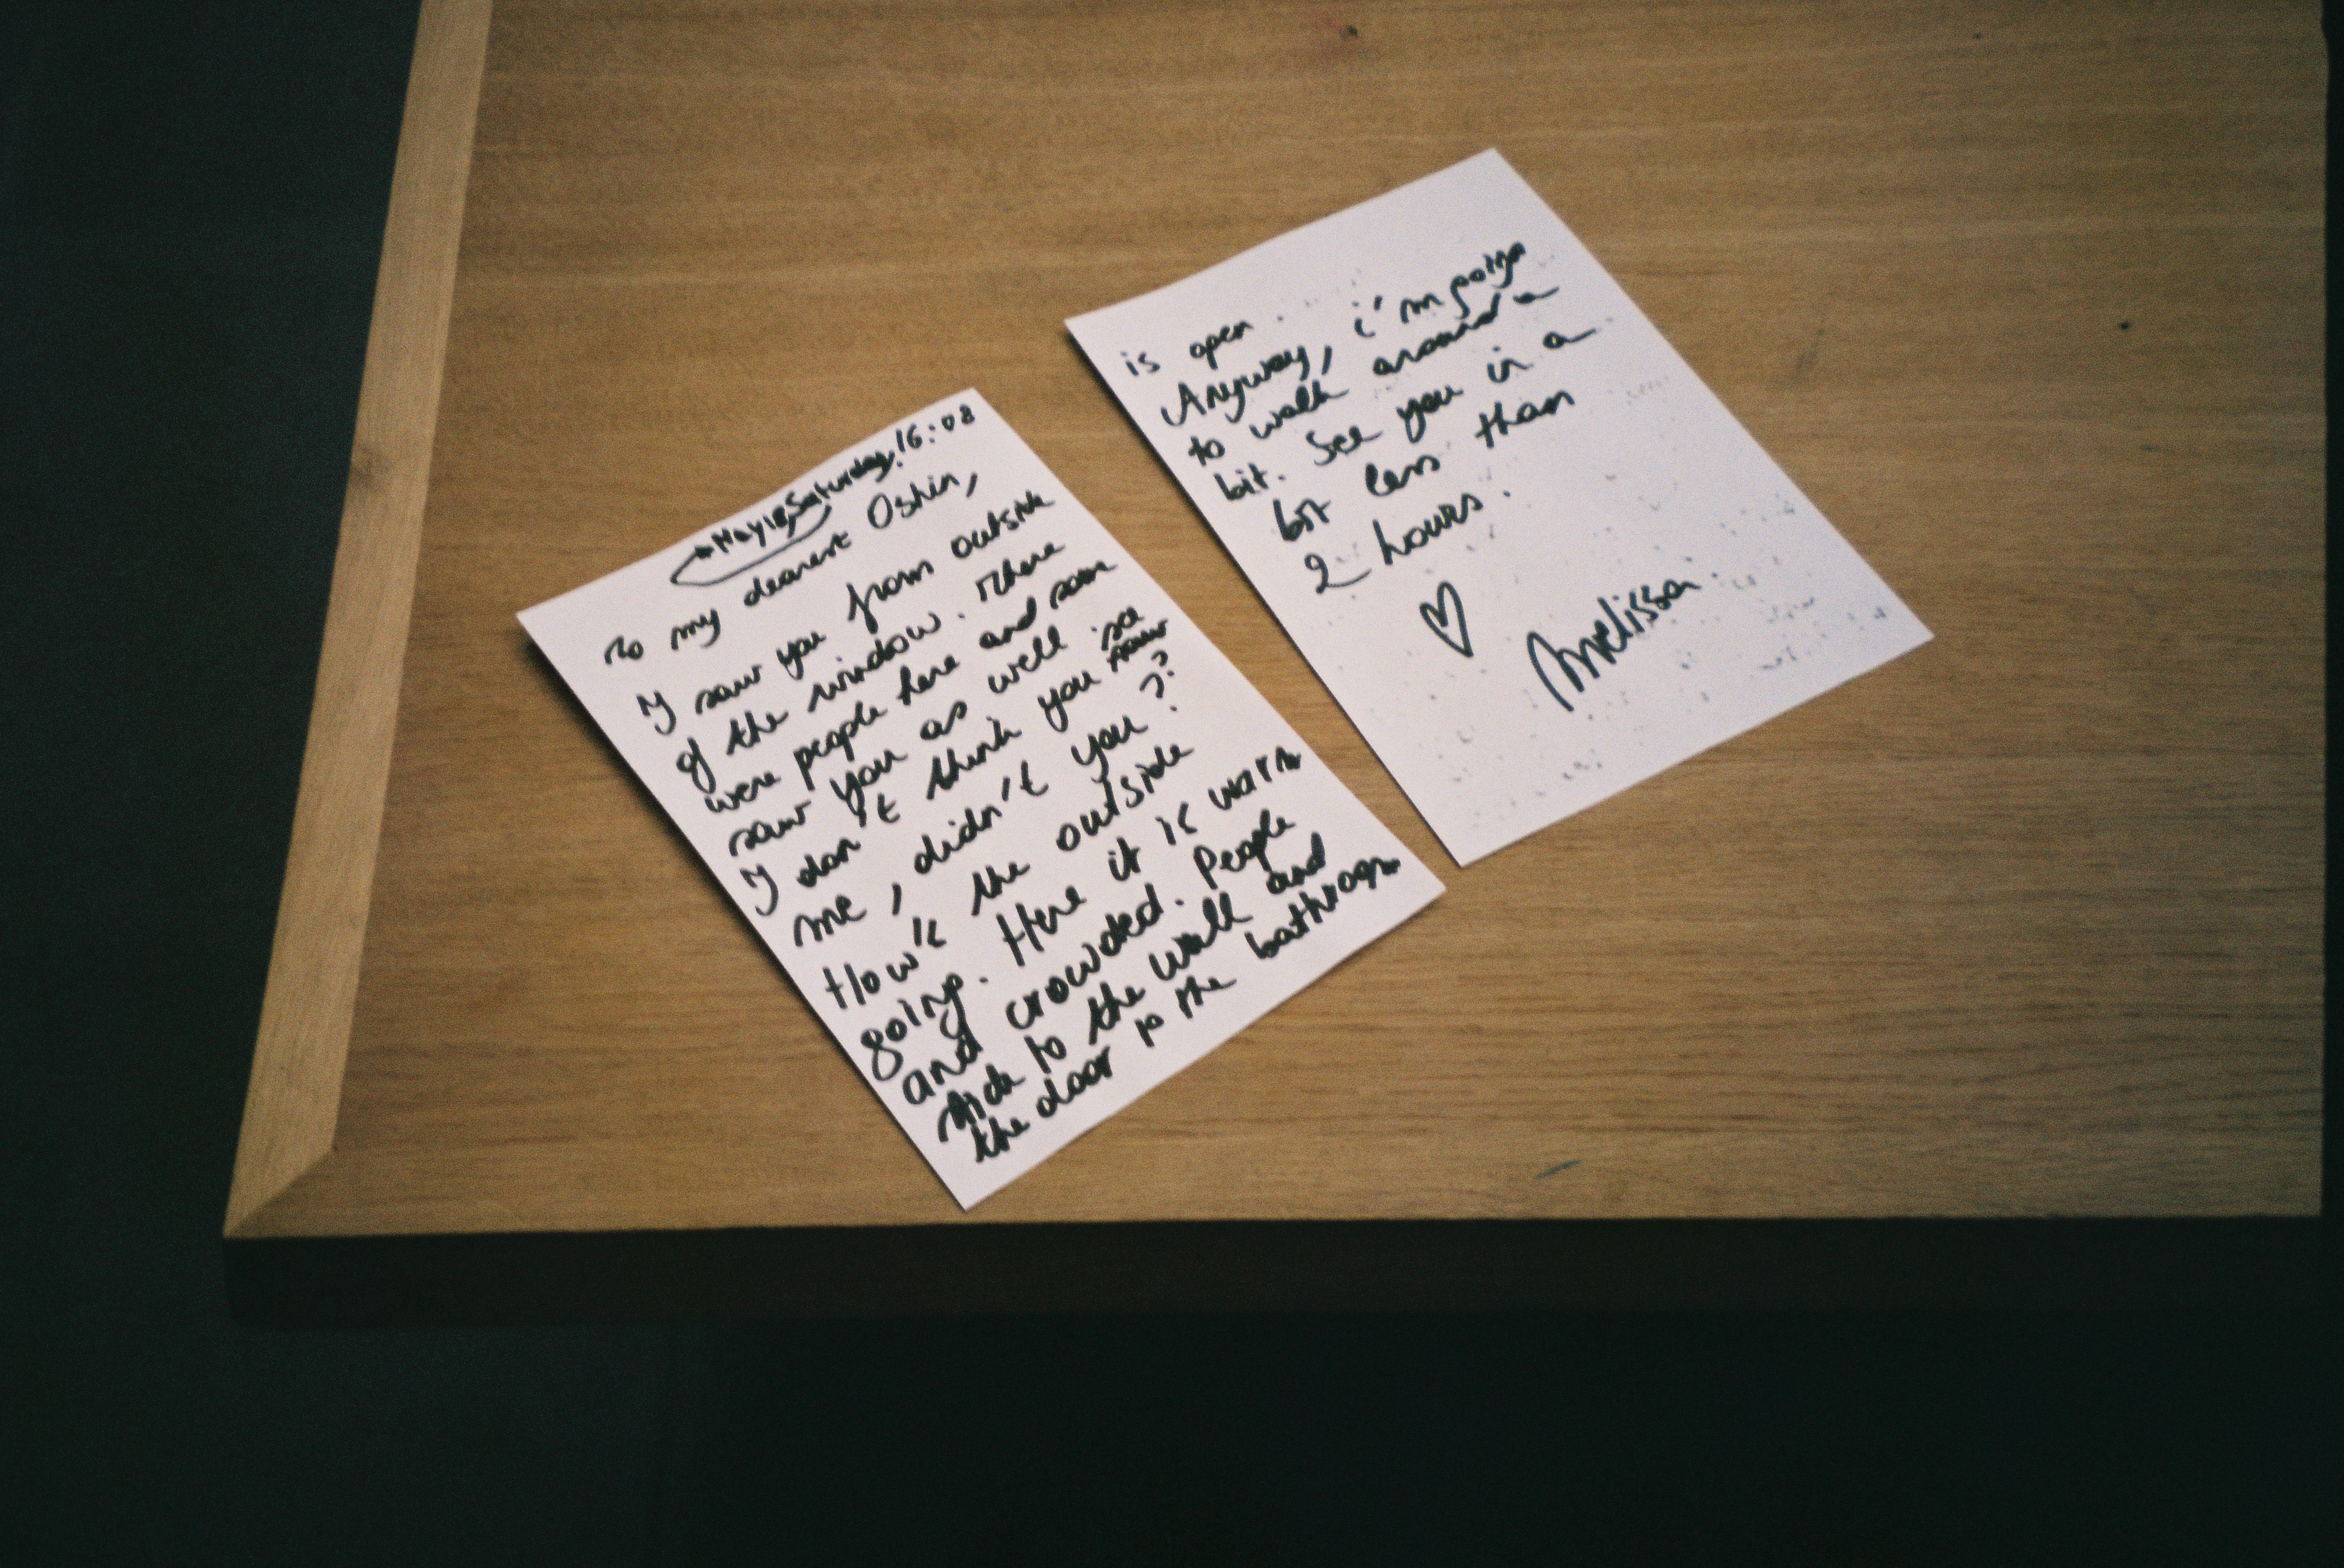 May 18, Saturday, 16:08
To my dearest Oshin,
I saw you from outside
of the window. There
were people here and some
saw you as well so
I don't think you saw
me, didn't you??
How's the outside
going. Here it is warm
and crowded. People
stick to the wall and
the door to the bathroom
is open.
Anyway, i'm going
to walk around a
bit. See you in a
bit less than
2 hours.
♡
Melissa.